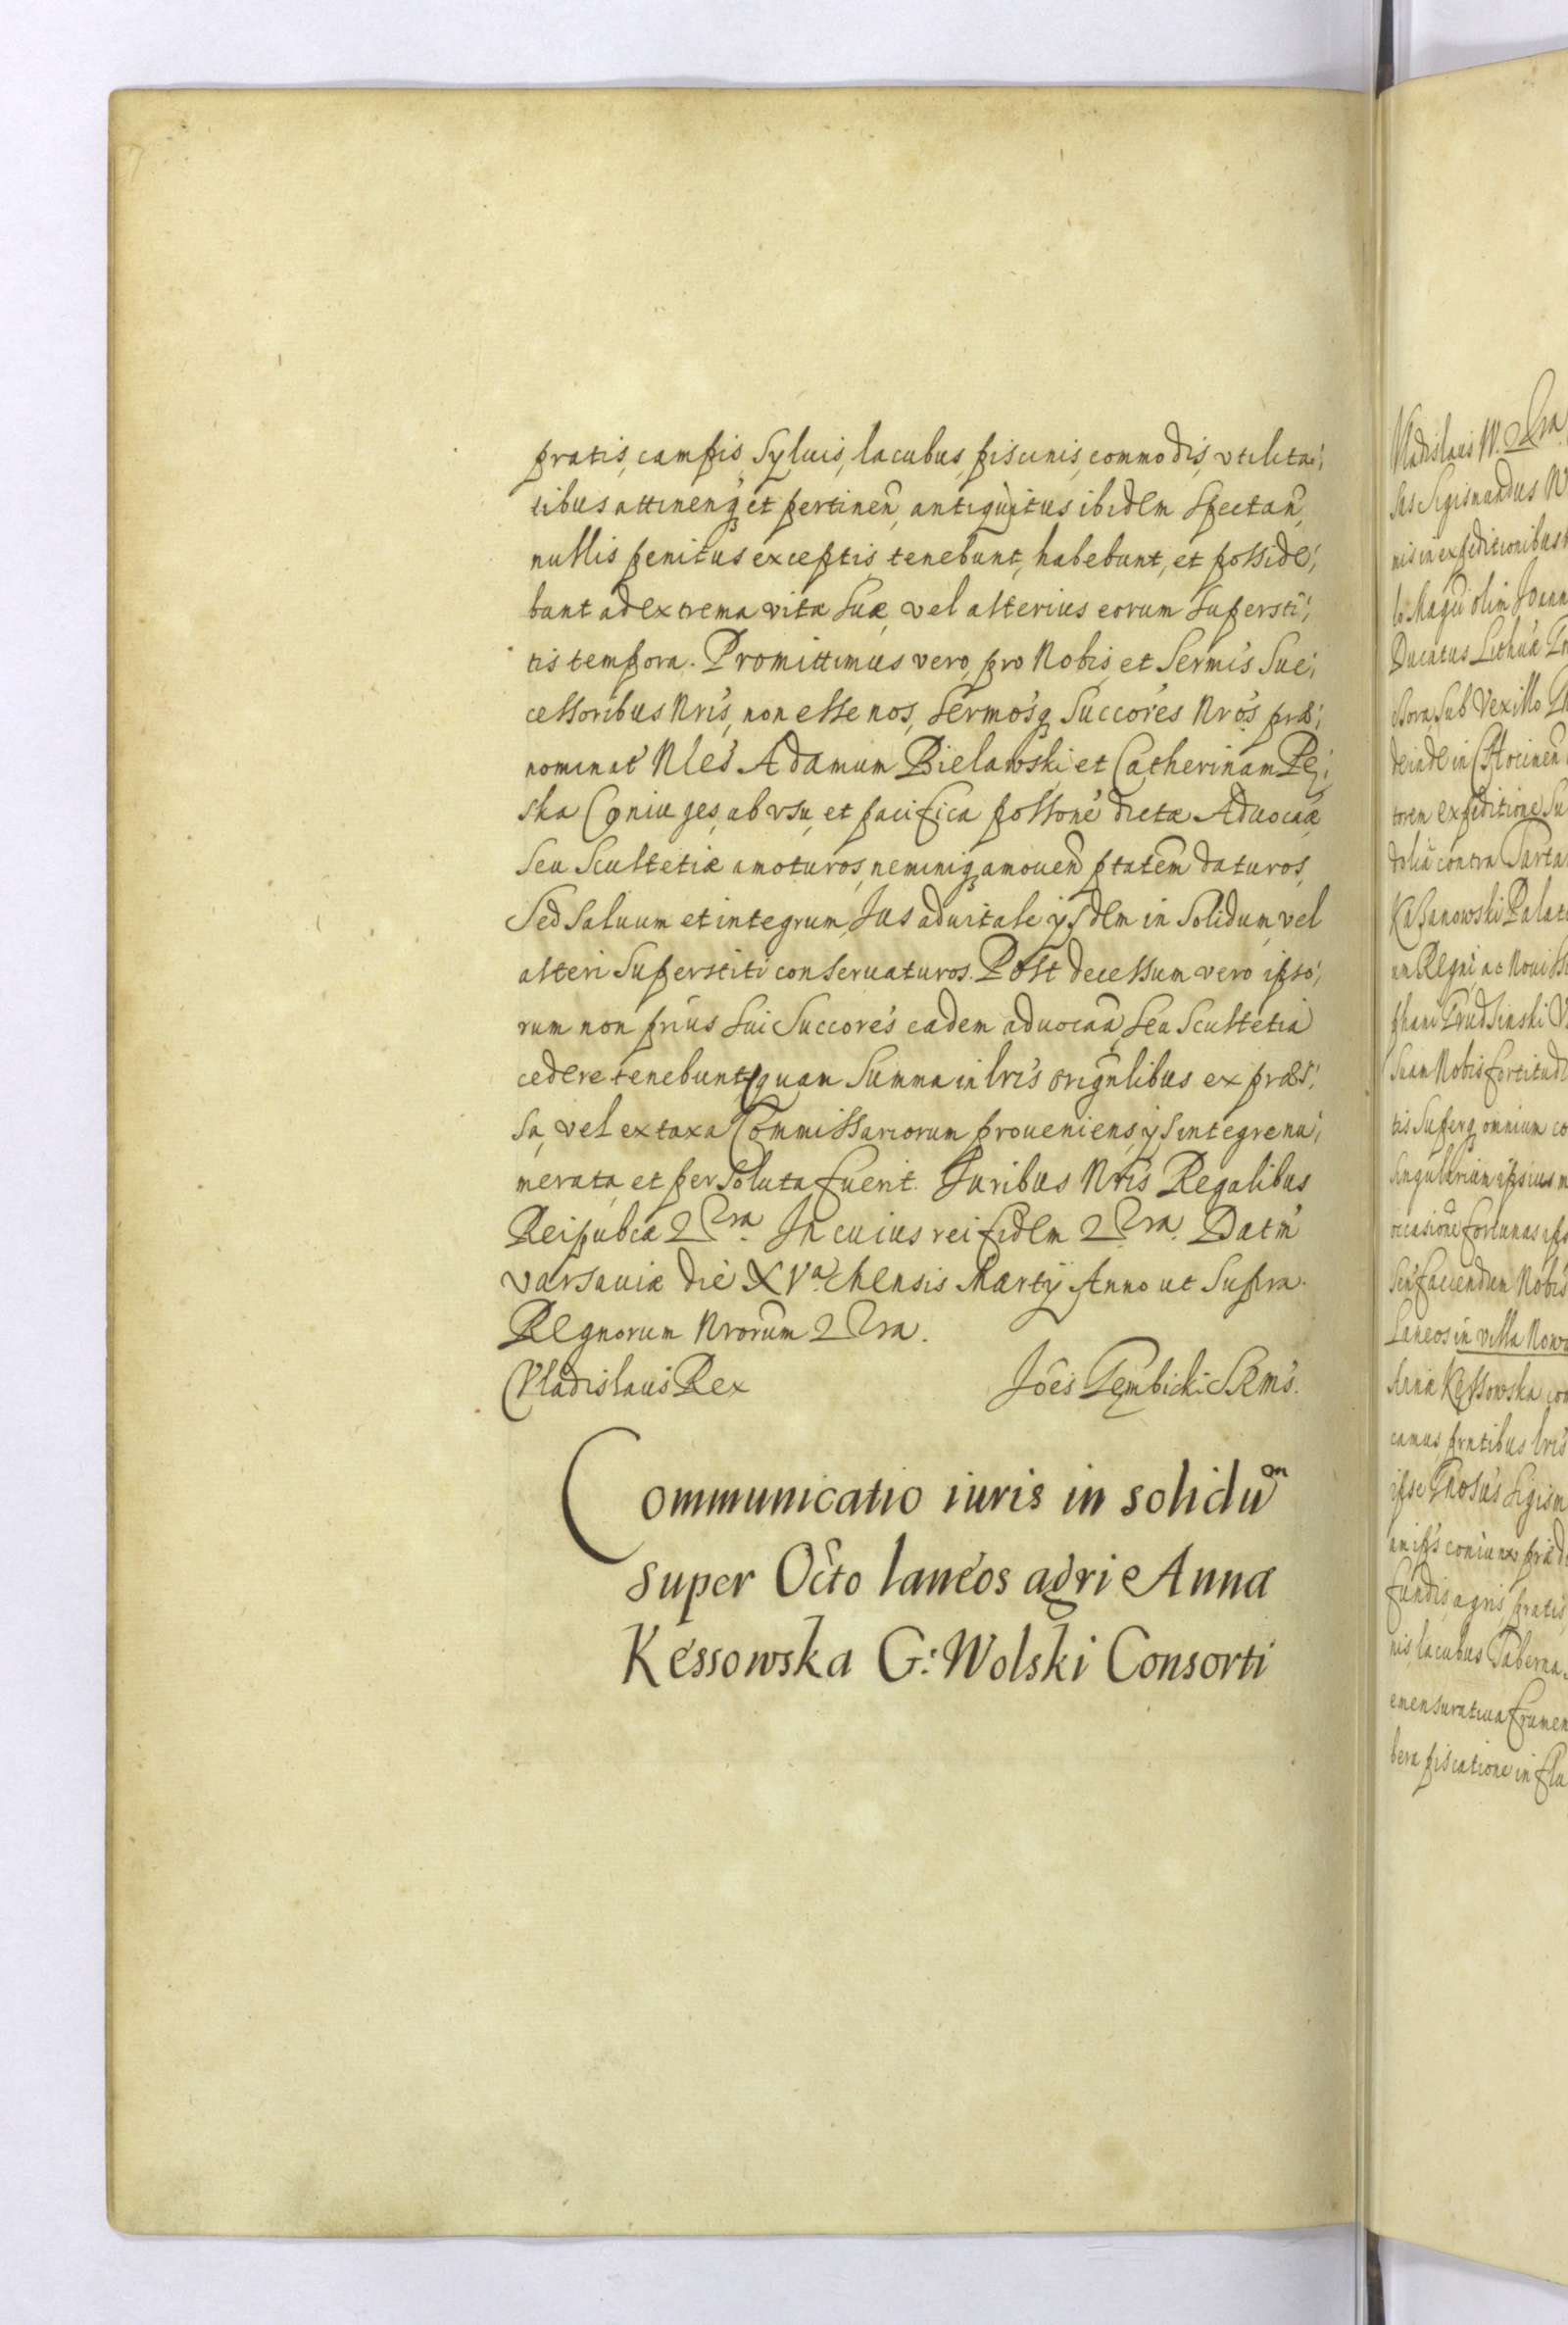 pratis, campis, Syluis, lacubus, piscinis, commodis, vtilita;
tibus attinenq̃ et pertinen̄, antiquitus ibidem Spectan̄,
nullis penitus exceptis tenebunt, habebunt, et posside;
bunt ad extrema vitæ suæ, vel alterius eorum supersti;
tis tempora. Promittimus vero, pro Nobis, et Sermis Suc;
cessoribus Nris, non esse nos, Sermosq̃ Succores Nros præ;
nominat Nles Adamum Bielawski et Catherinam Pę;
ska Coniuges, ab vsu, et pacifica possone dictæ Aduocaæ
seu Scultetiæ amoturos, neminiq̃ amouen̄ ptatem daturos,
Sed saluum et integrum, Jus aduitale ysdem in Solidum, vel
alteri Superstiti conseruaturos. Post decessum vero ipso;
rum non prius sui Succores eadem aduocaa, seu Scultetia
cedere tenebunt, quam Summa in lris orignlibus expræs;
sa, vel ex taxa Commissariorum proueniens, ys integre nu;
merata, et persoluta fuerit. Juribus Nris Regalibus
Reipubcæ 2 Tra In cuius rei fidem 2 Tra. Datm
Varsauiæ die XVa Mensis Marty Anno ut Supra.
Regnorum Nrorum 2 Tra.
Vladislaus Rex Joes Gembicki SRMs.
Communicatio iuris in solidum
super Octo laneos agri Annæ
Kessowska G: Wolski Consorti
Vladislaus IV.
Sus Sigismundus
nis in expeditionibus
lo Magci olim Joann
Ducatus Lithuæ
sub Vexillo
deinde in Chocinen
torem expeditione Su
doliæ contra Tarta
Kasanowski Palat
Regni ac Nouiss
Suam Nobis fortitud
tis Superq̃ omnium co
singularium ipsius
occasione fortunas ips
faciendum Nobis
Laneos in villa Nowa
Annæ Kessowska con
camus prntibus lris
ipse Gnosus Sigism
coniunx præd
fundis, agris, pratis,
nis, lacubus Taberna
emensuratiua frumen
bera piscatione in flu